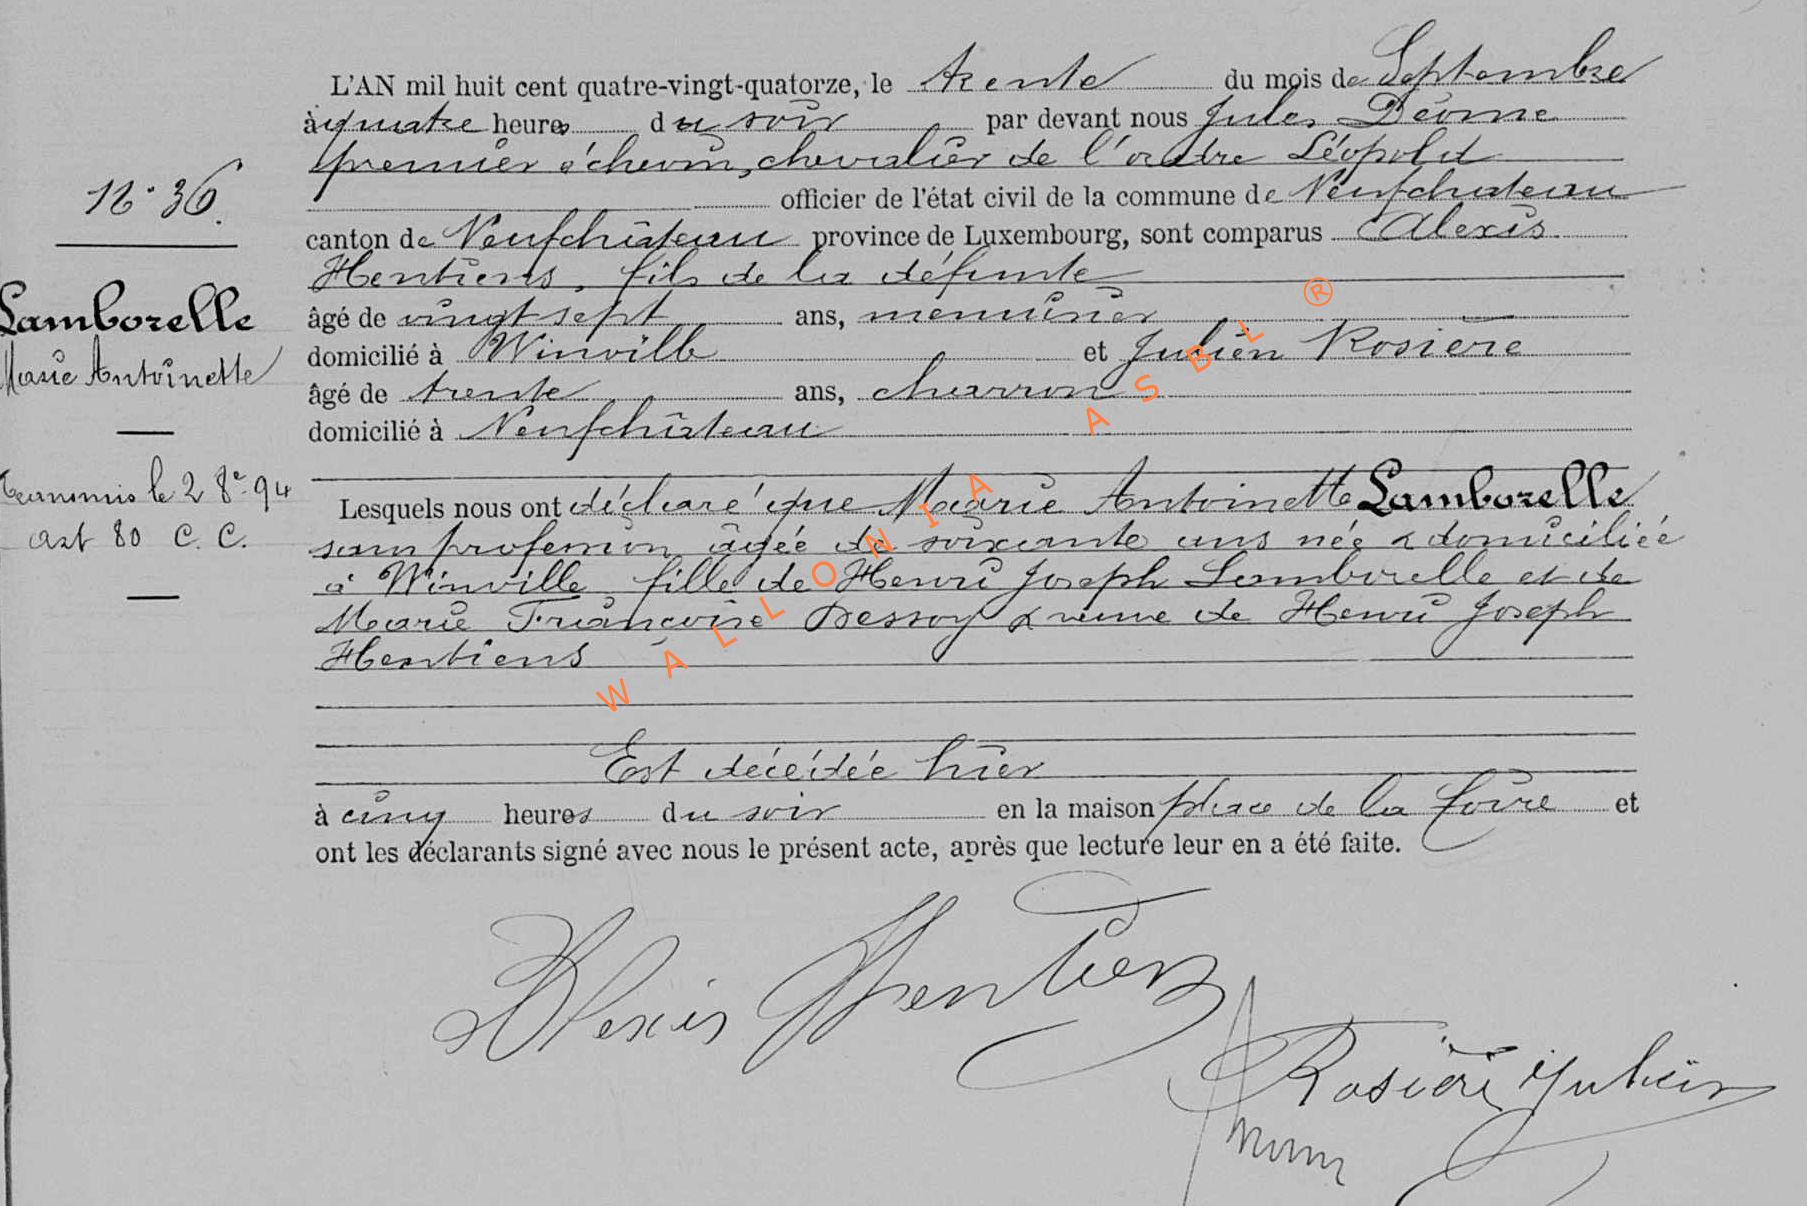 L'AN mil huit cent quatre-vingt-quatorze, le trente du mois de Septembre
à quatre heures du soir par devant nous Jules Déome
premier échevin, chevalier de l'ordre Léopold
officier de l'état civil de la commune de Neufchateau
N° 36.
canton de Neufchâteau province de Luxembourg, sont comparus Alexis
Hentiens, fils de la défunte
Lamborelle
Marie Antoinette
âgé de vingt sept ans, menuisier
domicilié à Winville et Julien Rosière
âgé de trente ans, charron
domicilié à Neufchâteau
Transmis le 2 8e 94
art 80 C. C.
Lesquels nous ont déclaré que Marie Antoinette Lamborelle
sans profession âgée de soixante ans née & domiciliée
à Winville, fille de Henri Joseph Lamborelle et de
Marie Françoise Dessoy & veuve de Henri Joseph
Hentiens
Est décédée hier
à cinq heures du soir en la maison place de la foire et
ont les déclarants signé avec nous le présent acte, après que lecture leur en a été faite.
Alexis Hentiens
Rosière Julien
WALLONIA ASBL ®